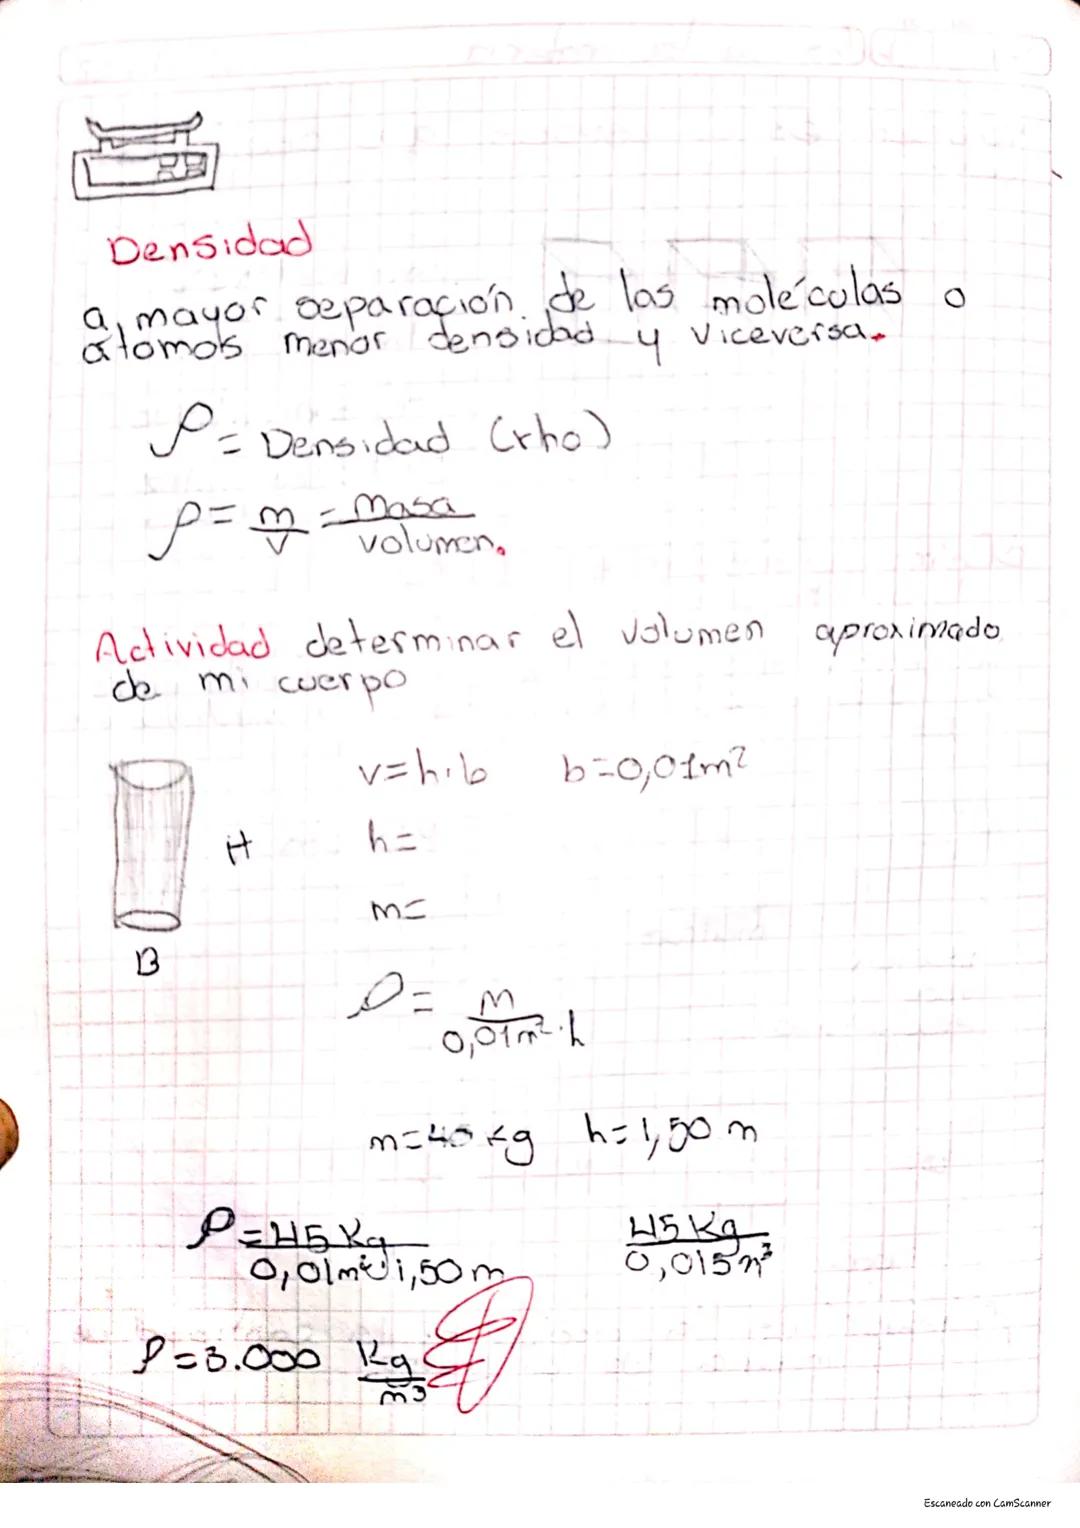 Densidad
a mayor separación de las moléculas o
átomos menor densidad y viceversa.
ρ = Densidad (rho)
ρ = m/v = Masa/volumen.
Actividad determinar el volumen aproximado
de mi cuerpo
v=h.b b=0,01m²
h=
H
m=
B
ρ = m/0,01m².h
m=45 kg h=1,50 m
ρ = 45 Kg/0,01m².1,50 m 45 Kg/0,015m³
ρ = 3.000 Kg/m³
Escaneado con CamScanner